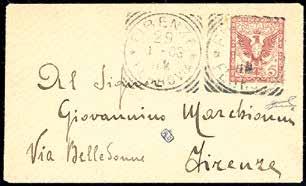 FIRENZE
29
1-03
Al Signor
Giovannino Marchionni
Via Belledonne
Firenze